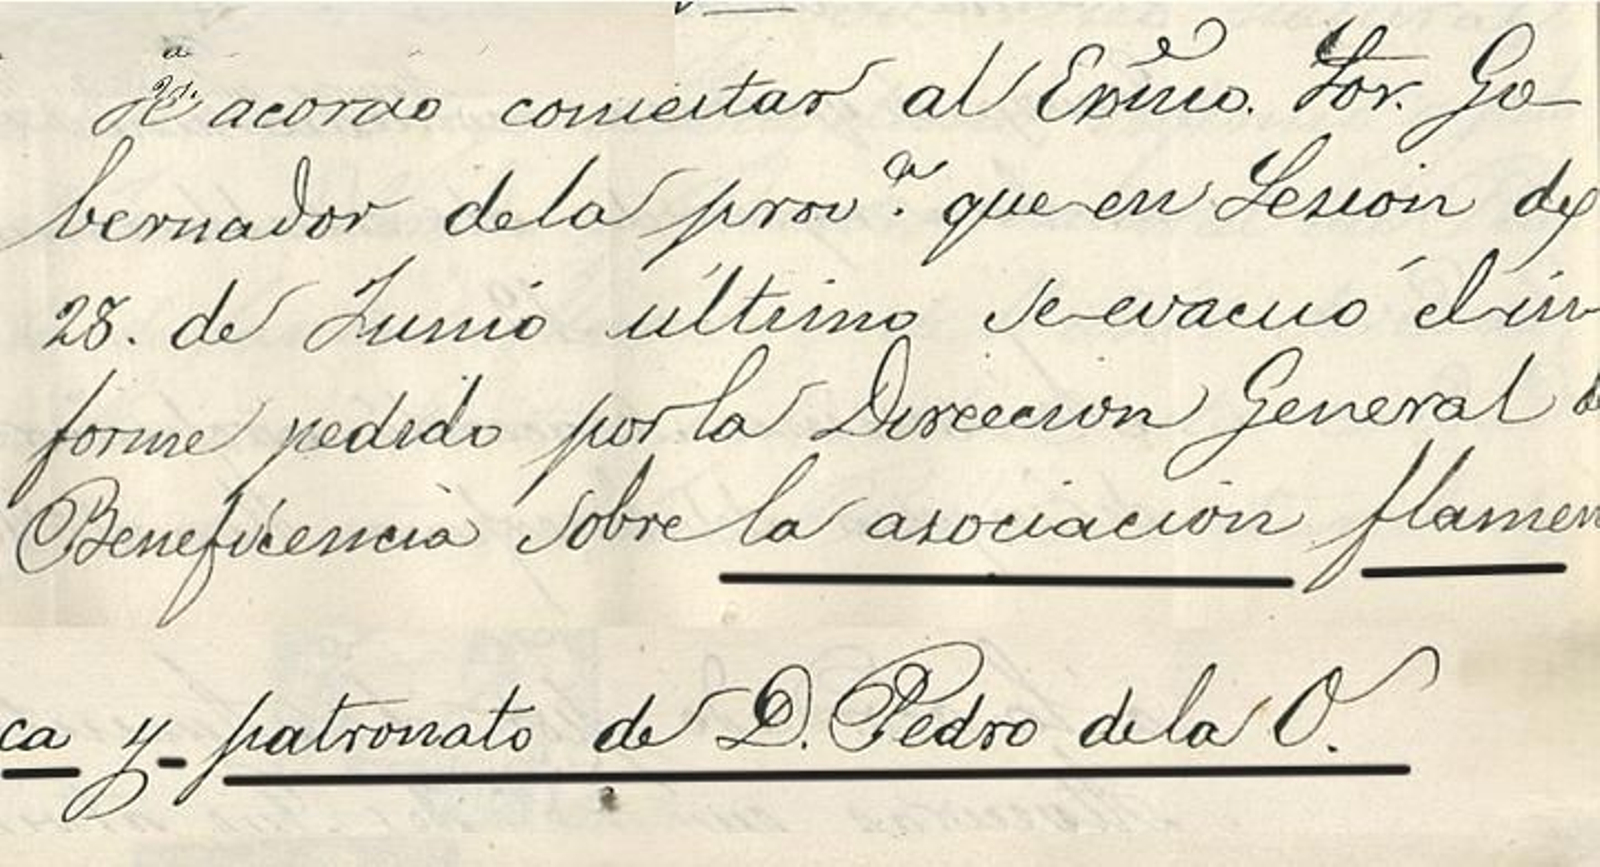 Se acordo contestar al Exmo. Sor. Go-
bernador de la prov.ª que en Sesion de
28. de Junio último se evacuó el in-
forme pedido por la Direccion General de
Beneficencia sobre la asociacion flamen
ca y patronato de D. Pedro de la O.